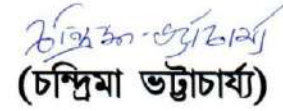 চন্দ্রিমা ভট্টাচার্য্য
(চন্দ্রিমা ভট্টাচার্য্য)